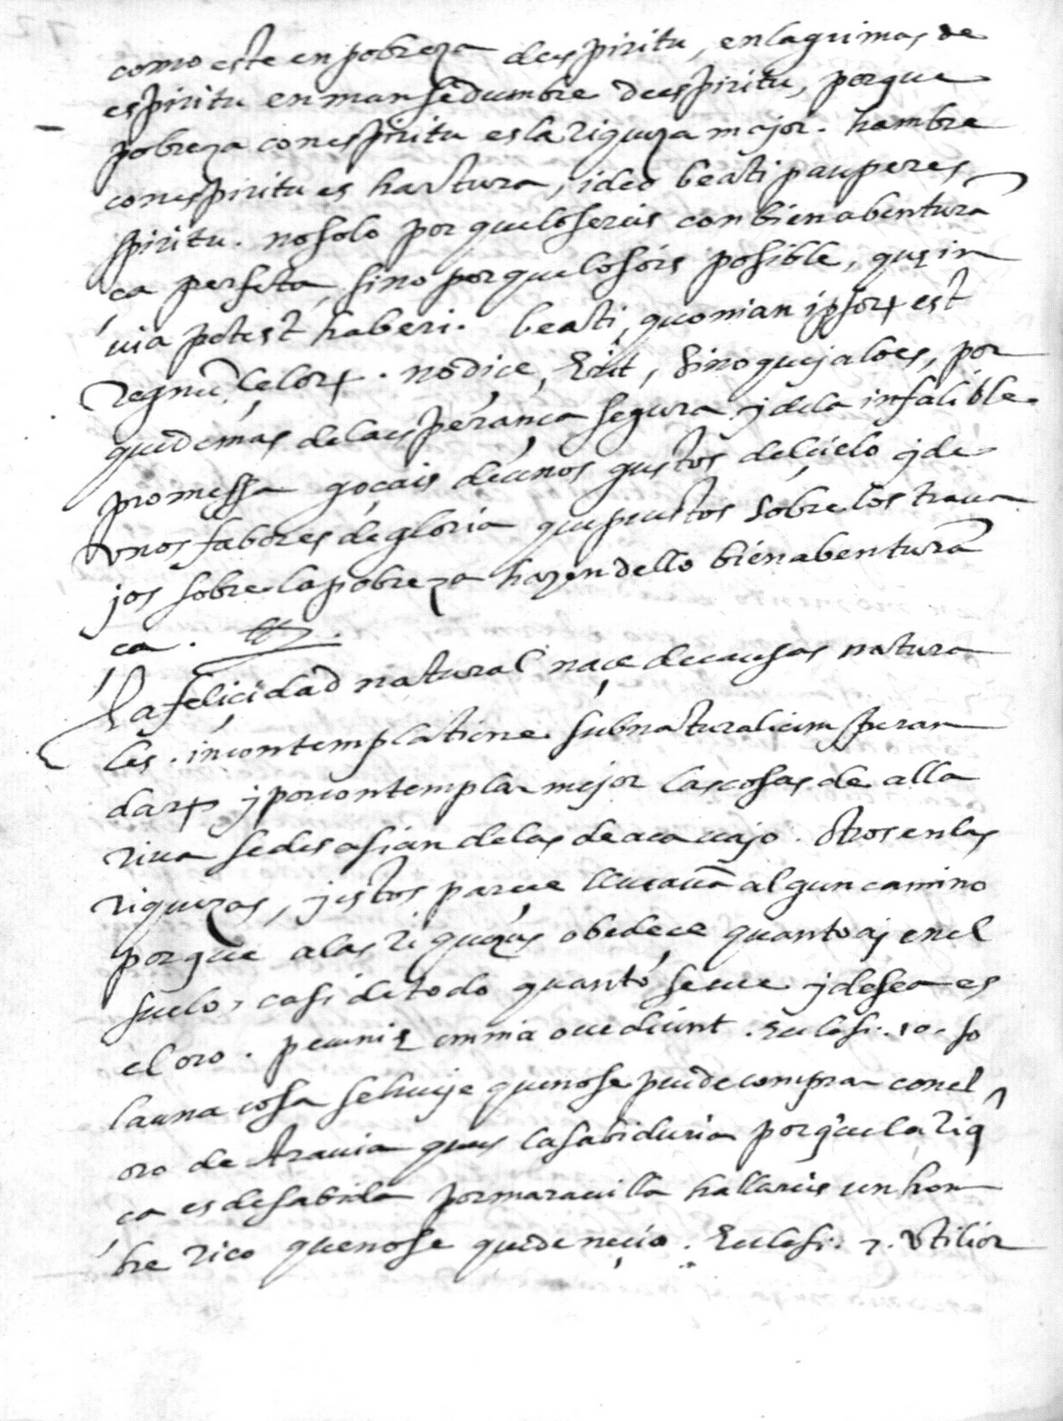 como este en pobreza de espiritu, en lagrimas de
espiritu en mansedumbre de espiritu, porque
pobreza con espiritu es la riqueza major. hambre
con espiritu es hartura, ideo beati pauperes
spiritu. no solo porque lo sereis con bienabentura
ça perfeta, sino porque lo sois posible, que in
via potest haberi. beati, quonian ipsorx est
regnũ celorx. no dice, Erit, sino que ja lo es, por
que demas de la esperança segura j de la infalible
promessa goçais de unos gustos del çielo j de
unos fabores de gloria que puestos sobre los traua
jos sobre la pobreza hazen dello bienabenturã
ça.
La felicidad natural naçe de causas natura
les. in contemplatione
darx j por contemplar mejor las cosas de alla
riua se desasian de las de aca uajo. Otros en las
riquezas, j estos pareçe lleuauã algun camino
porque a las riquezas obedece quanto aj en el
suelo, casi de todo quanto se ue j desea es
el oro. pecunię omnia ouediunt. Eclesi. 10. so
la una cosa se huje que no se puede comprar con el
oro de Arauia que es la sabiduria porque la riq
ça es desabida por marauilla hallareis un hom
bre rico que no se quede neçio. Eclesi. 7. Vtilior